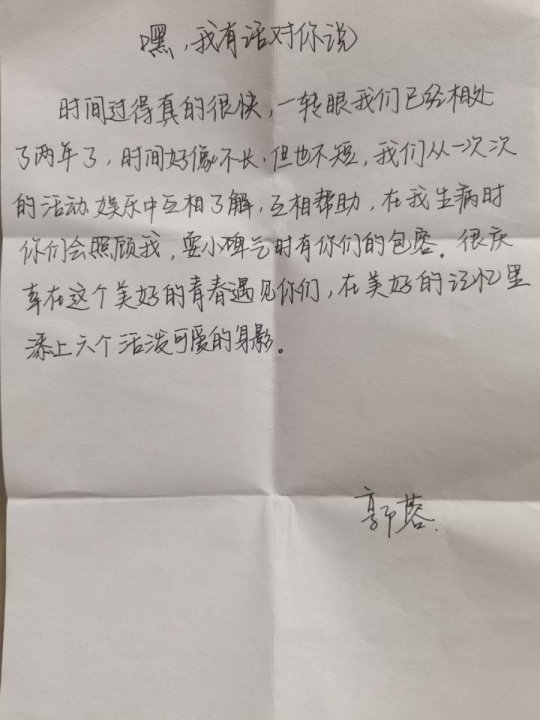 嘿,我有话对你说
时间过得真的很快,一转眼我们已经相处
了两年了,时间好像不长,但也不短,我们从一次次
的活动娱乐中互相了解,互相帮助,在我生病时
你们会照顾我,耍小脾气时有你们的包容。很庆
幸在这个美好的青春遇见你们,在美好的记忆里
添上六个活泼可爱的身影。
郭蓉.